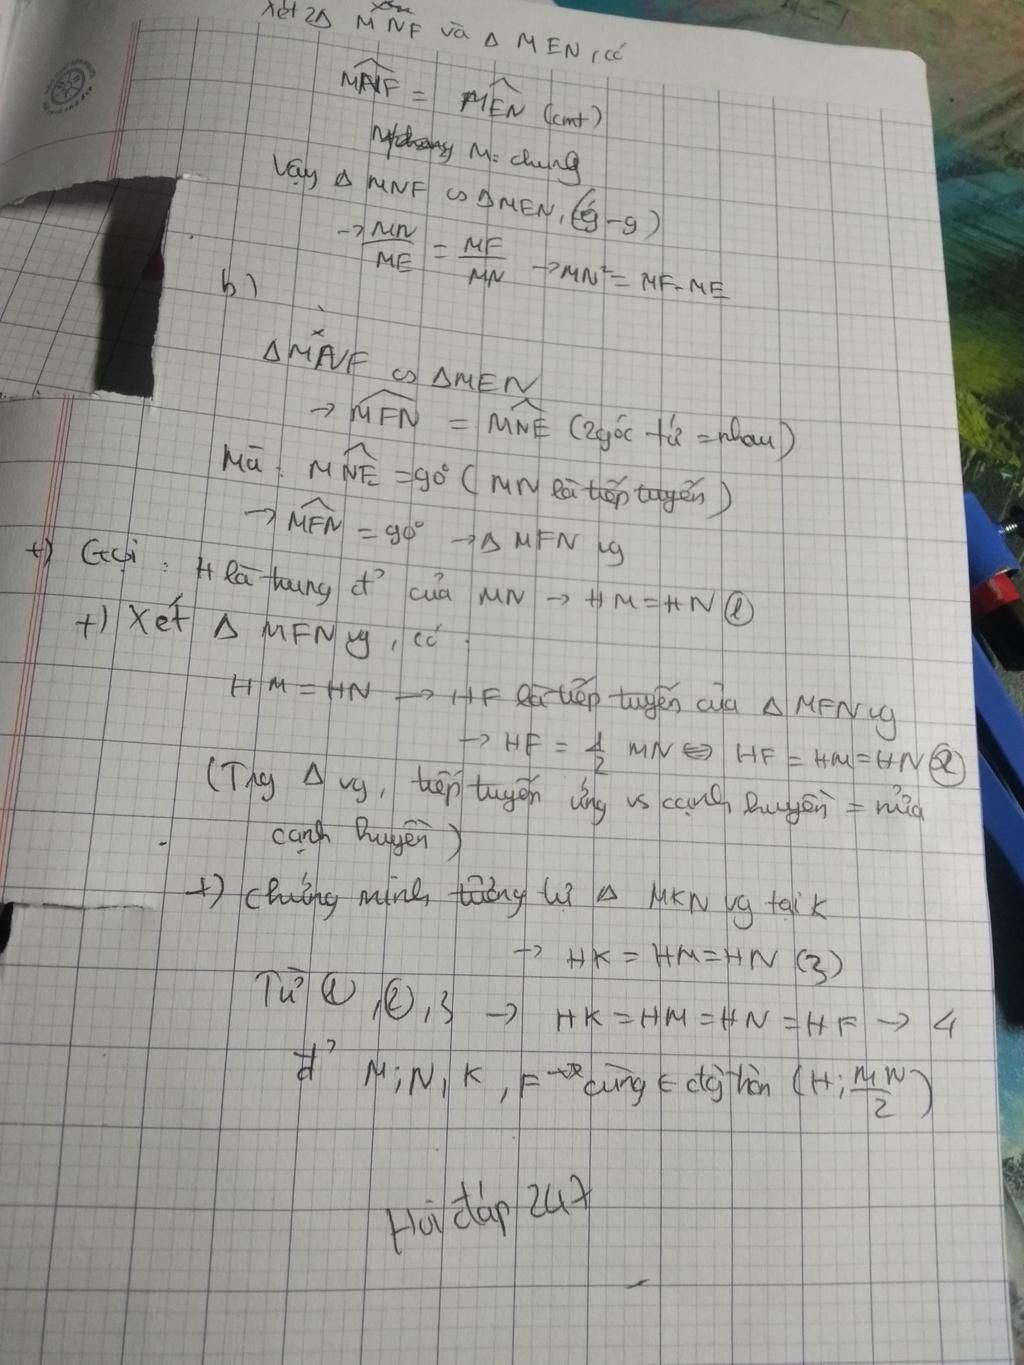 Xét 2Δ MNF và Δ MEN, có
MNF = MEN (cmt)
M: chung
Vậy Δ MNF ∽ ΔMEN, (g-g)
→ MN/ME = MF/MN → MN² = MF. ME
b)
ΔMNF ∽ ΔMEN
→ MFN = MNE (2góc tứ = nhau)
Mà: MNE = 90° (MN là tiếp tuyến)
→ MFN = 90° → Δ MFN vg
+) Gọi: H là trung đ' của MN → HM = HN (1)
+) Xét Δ MFN vg, có:
HM = HN → HF là tiếp tuyến của Δ MFN vg
→ HF = 1/2 MN ⇔ HF = HM = HN (2)
(Trg Δ vg, tiếp tuyến ứng vs cạnh huyền = nửa
cạnh huyền)
+) Chứng minh tương tự Δ MKN vg tại K
→ HK = HM = HN (3)
Từ (1), (2), 3 → HK = HM = HN = HF → 4
đ' M; N, K, F cùng ∈ đg tròn (H; MN/2)
Hỏi đáp 247